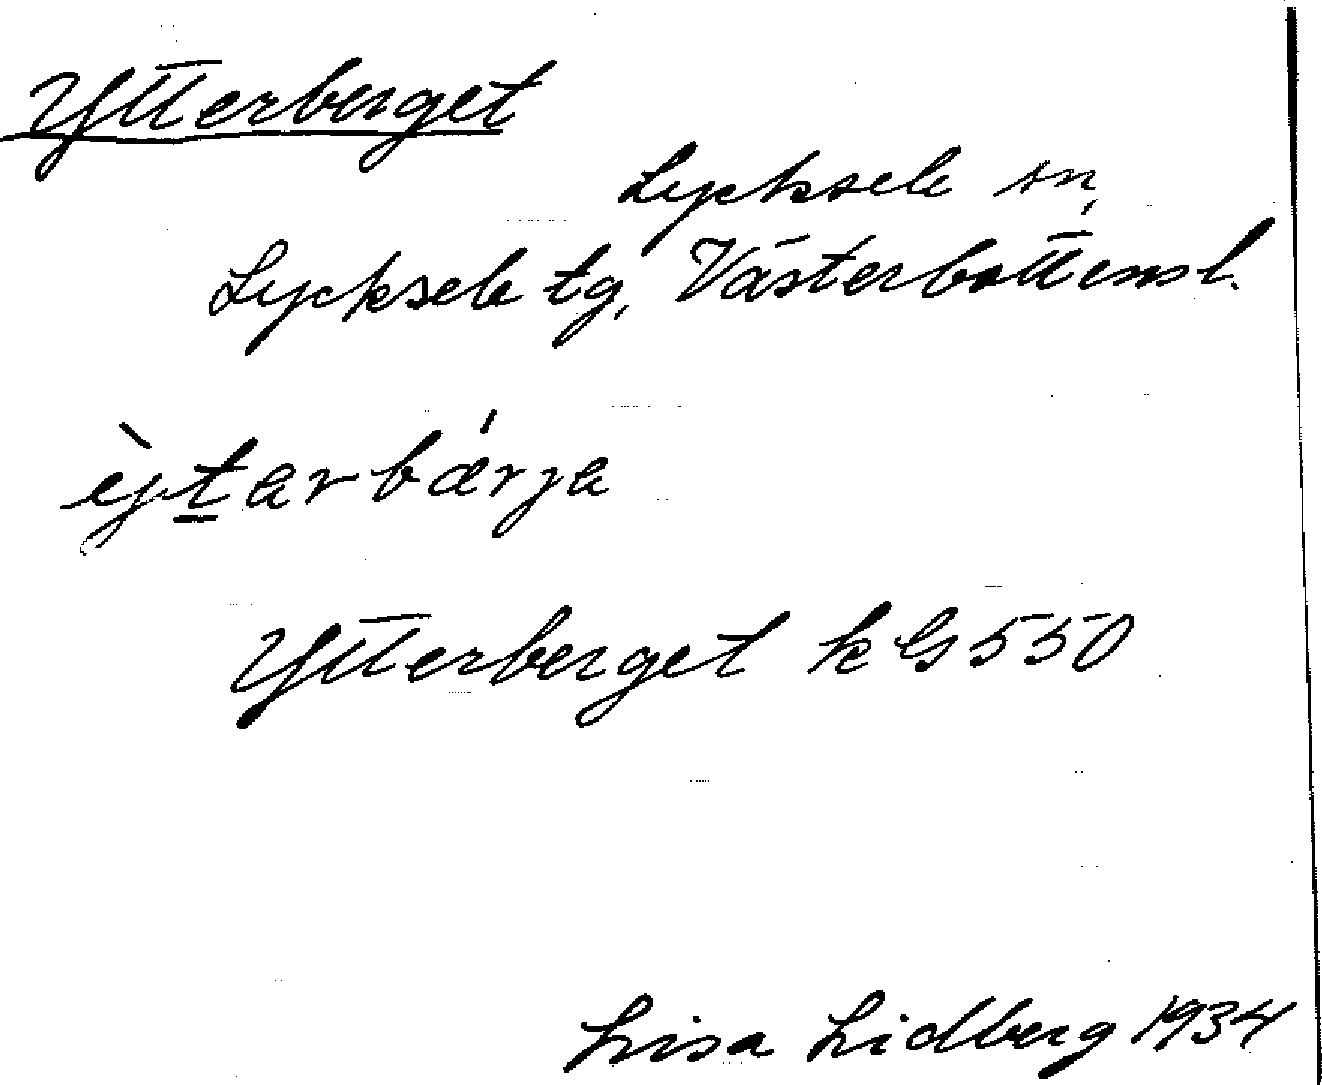 Ytterberget
Lycksele sn,
Lycksele tg, Västerbottensl.
èyt̲arbǽrja
Ytterberget k GS 550
Lisa Lidberg 1934